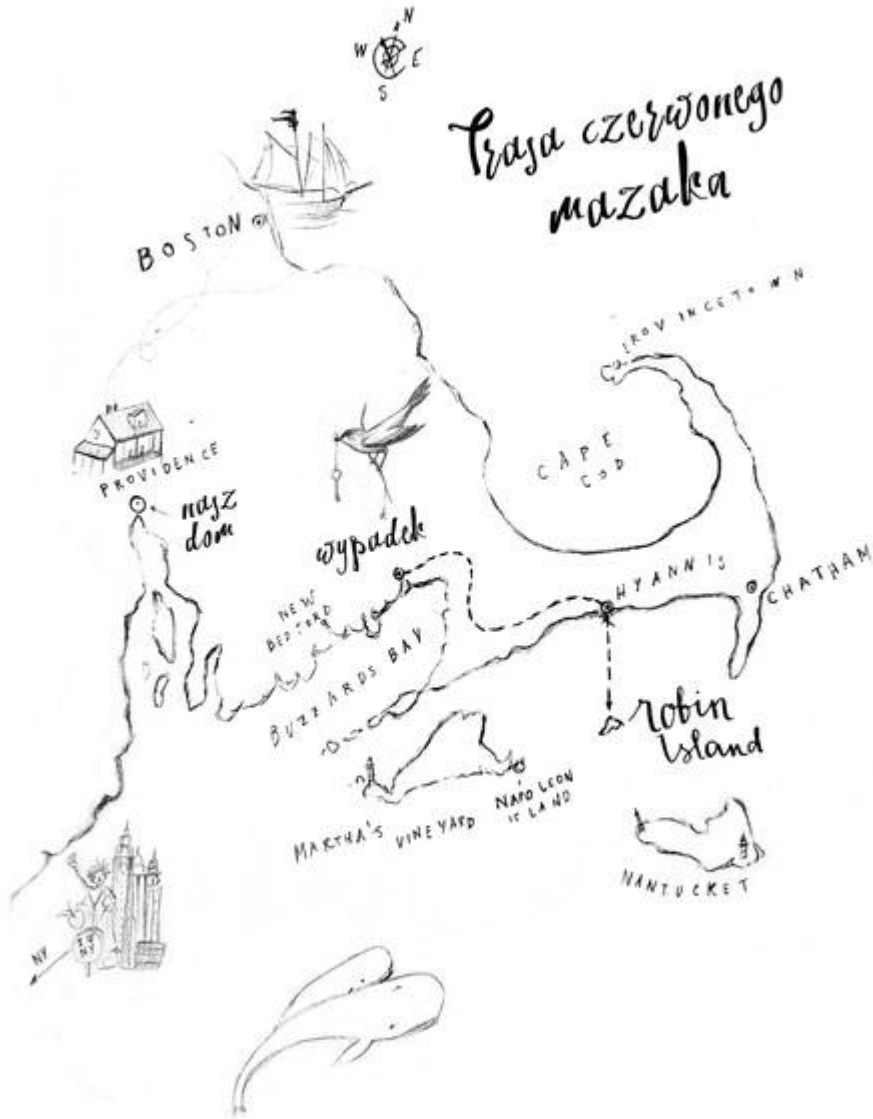 N
W
E
S
Trasa czerwonego
mazaka
BOSTON
PROVINCETOWN
CAPE
COD
PROVIDENCE
nasz
dom
wypadek
NEW
BEDFORD
HYANNIS
CHATHAM
BUZZARDS BAY
robin
island
MARTHA'S VINEYARD
NAPOLEON
ISLAND
NANTUCKET
NY